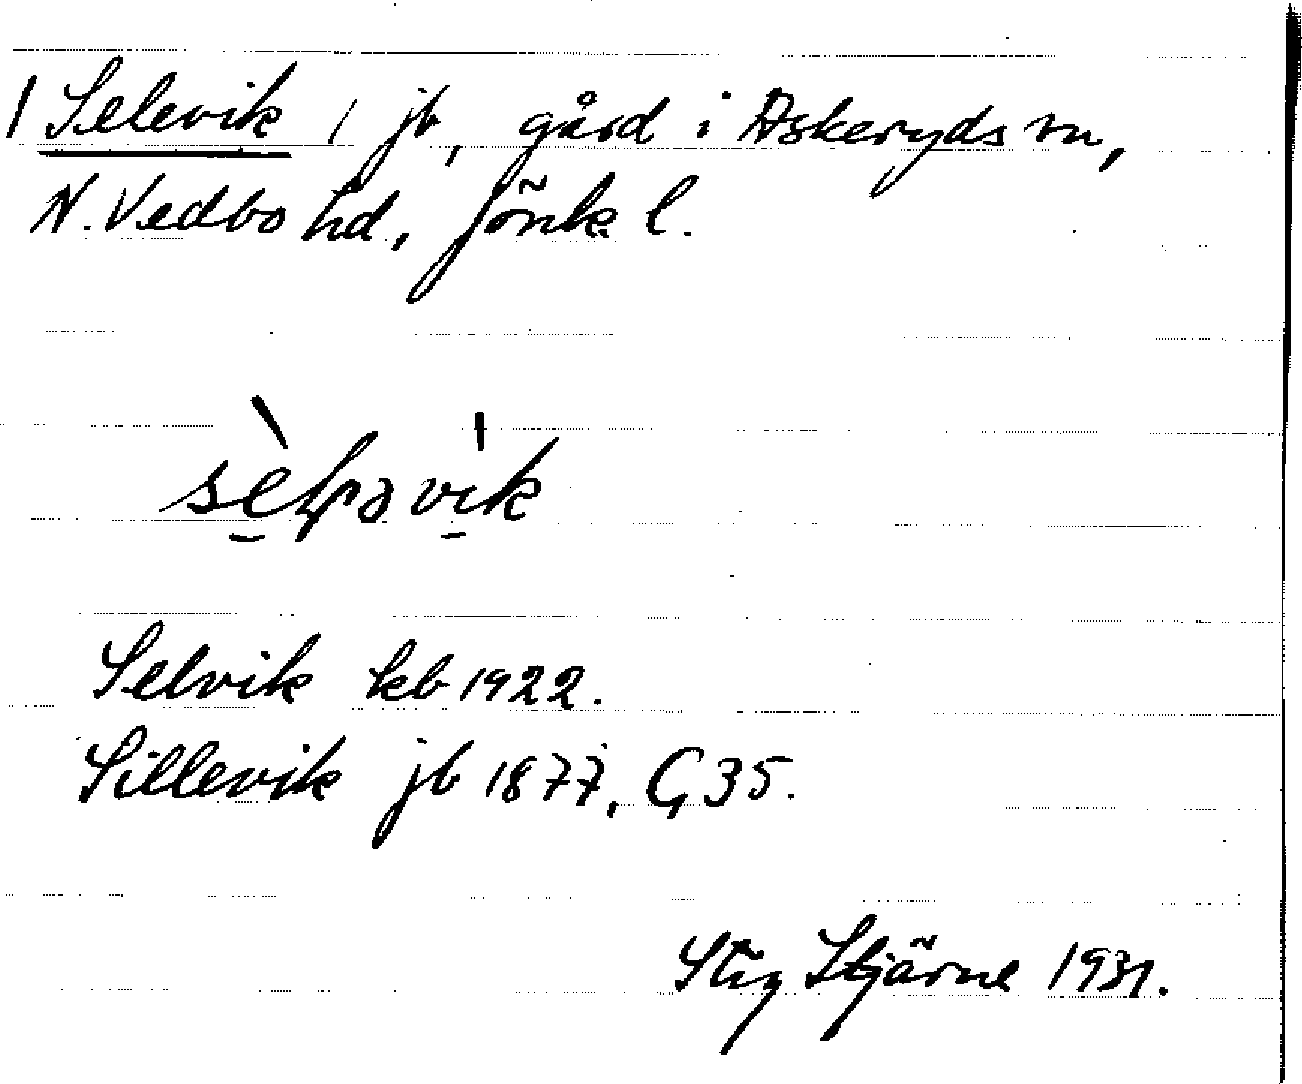 / Selevik / jb, gård i Askeryds sn,
N. Vedbo hd, Jönk l.
Selvik kb 1922.
Sillevik jb 1877, G 35.
Stig Stjärne 1931.